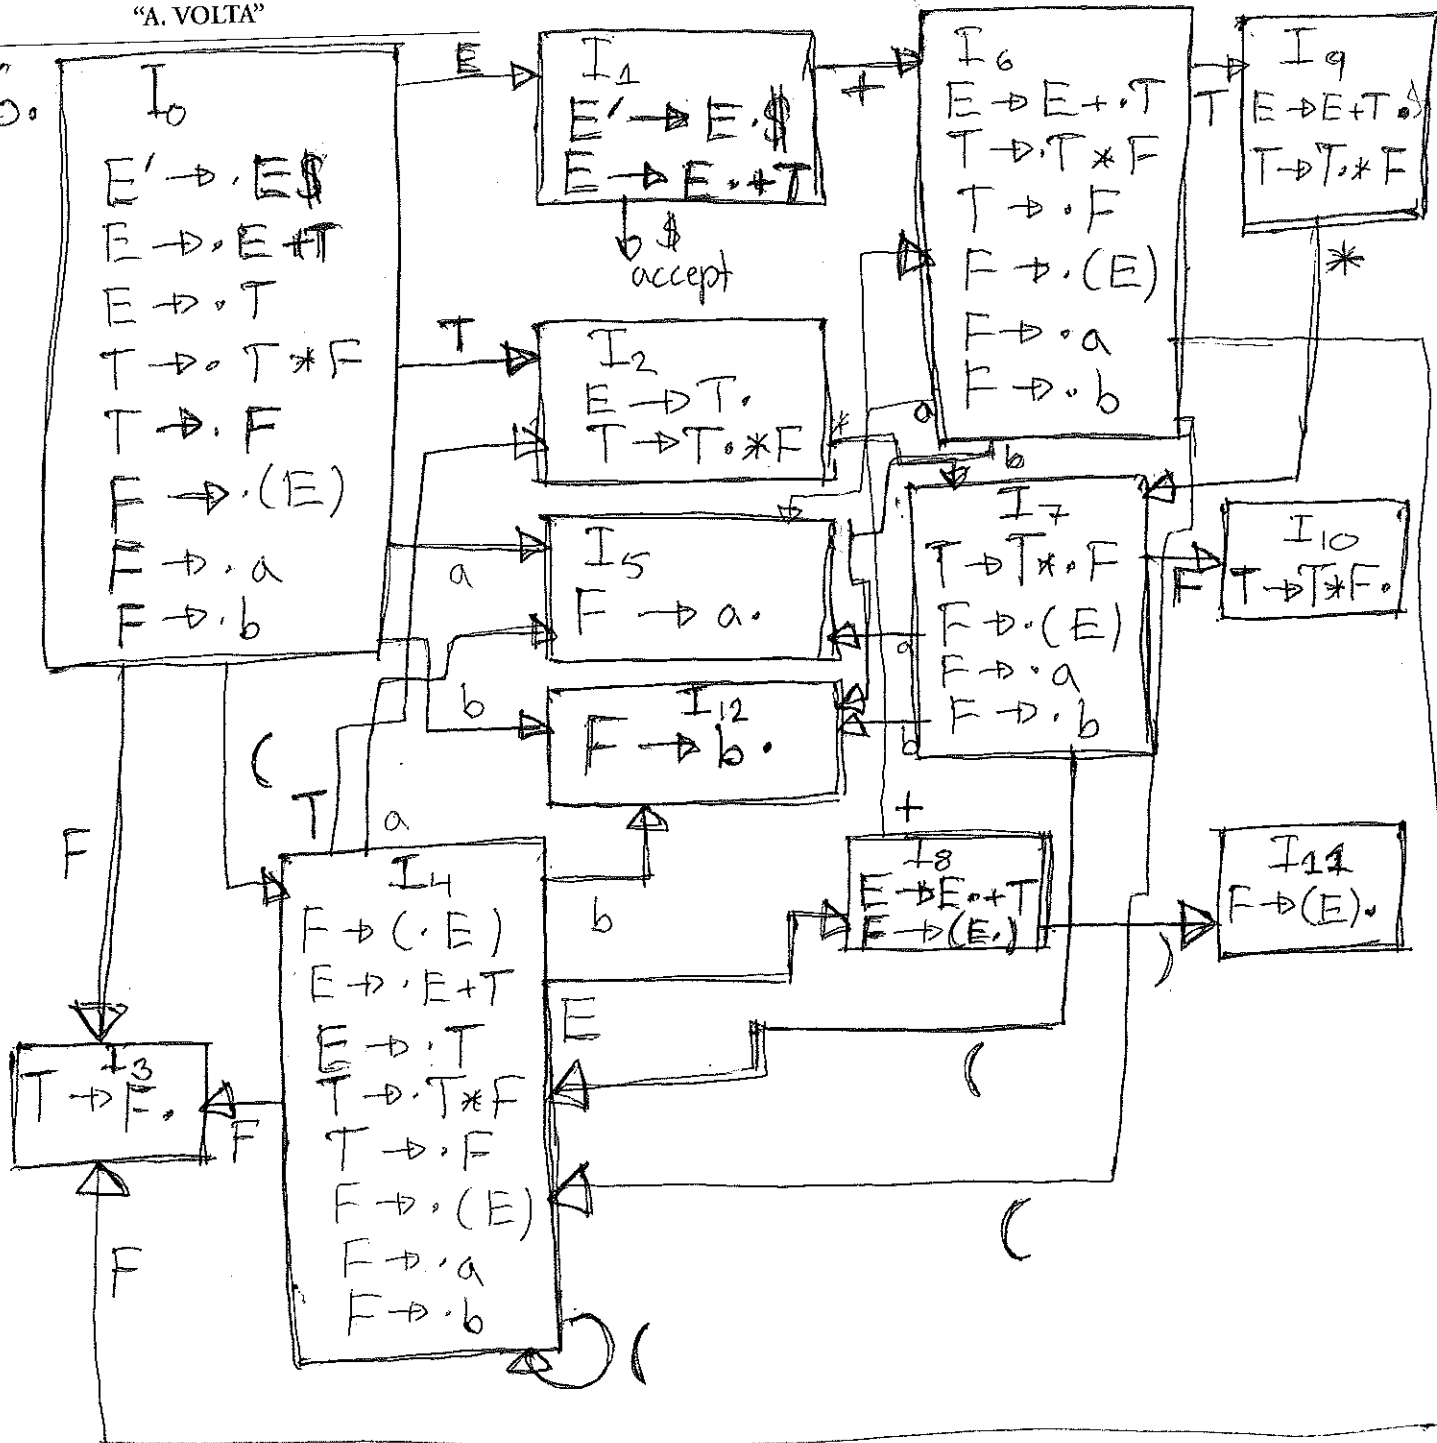 "A. VOLTA"
I0
E' → . E$
E → . E+T
E → . T
T → . T * F
T → . F
F → . (E)
F → . a
F → . b
E
I1
E' → E . $
E → E . + T
$
accept
+
I6
E → E + . T
T → . T * F
T → . F
F → . (E)
F → . a
F → . b
T
I9
E → E + T .
T → T . * F
*
T
I2
E → T .
T → T . * F
*
a
b
a
I5
F → a .
I7
T → T * . F
F → . (E)
F → . a
F → . b
F
I10
T → T * F .
a
b
b
I12
F → b .
(
T
a
F
+
I4
F → ( . E)
E → . E + T
E → . T
T → . T * F
T → . F
F → . (E)
F → . a
F → . b
b
E
I8
E → E . + T
F → (E . )
)
I11
F → (E) .
(
(
I3
T → F .
F
F
(